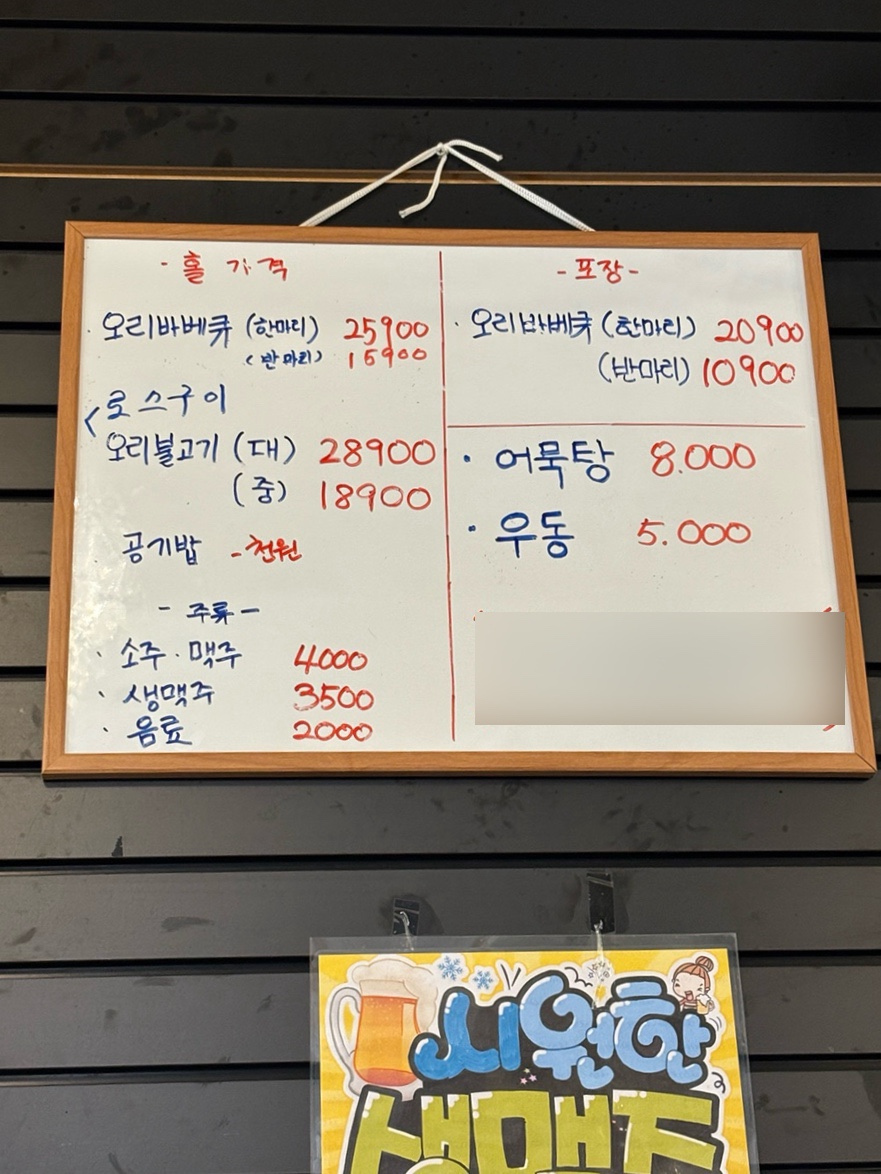 - 홀 가격
· 오리바베큐 (한마리) 25900
(반마리) 15900
< 로스구이
오리불고기 (대) 28900
(중) 18900
공기밥 - 천원
- 주류 -
· 소주 · 맥주 4000
· 생맥주 3500
· 음료 2000
- 포장 -
· 오리바베큐 (한마리) 20900
(반마리) 10900
· 어묵탕 8.000
· 우동 5.000
시원한
생맥주